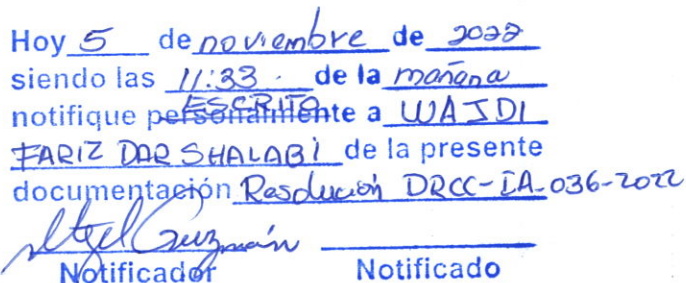 Hoy 5 de noviembre de 2022
siendo las 11:33 . de la mañana
notifique personalmente ESCRITO a WAJDI
FARIZ DAR SHALABI de la presente
documentación Resolución DRCC-IA-036-2022
Itzel Guzmán
Notificador Notificado